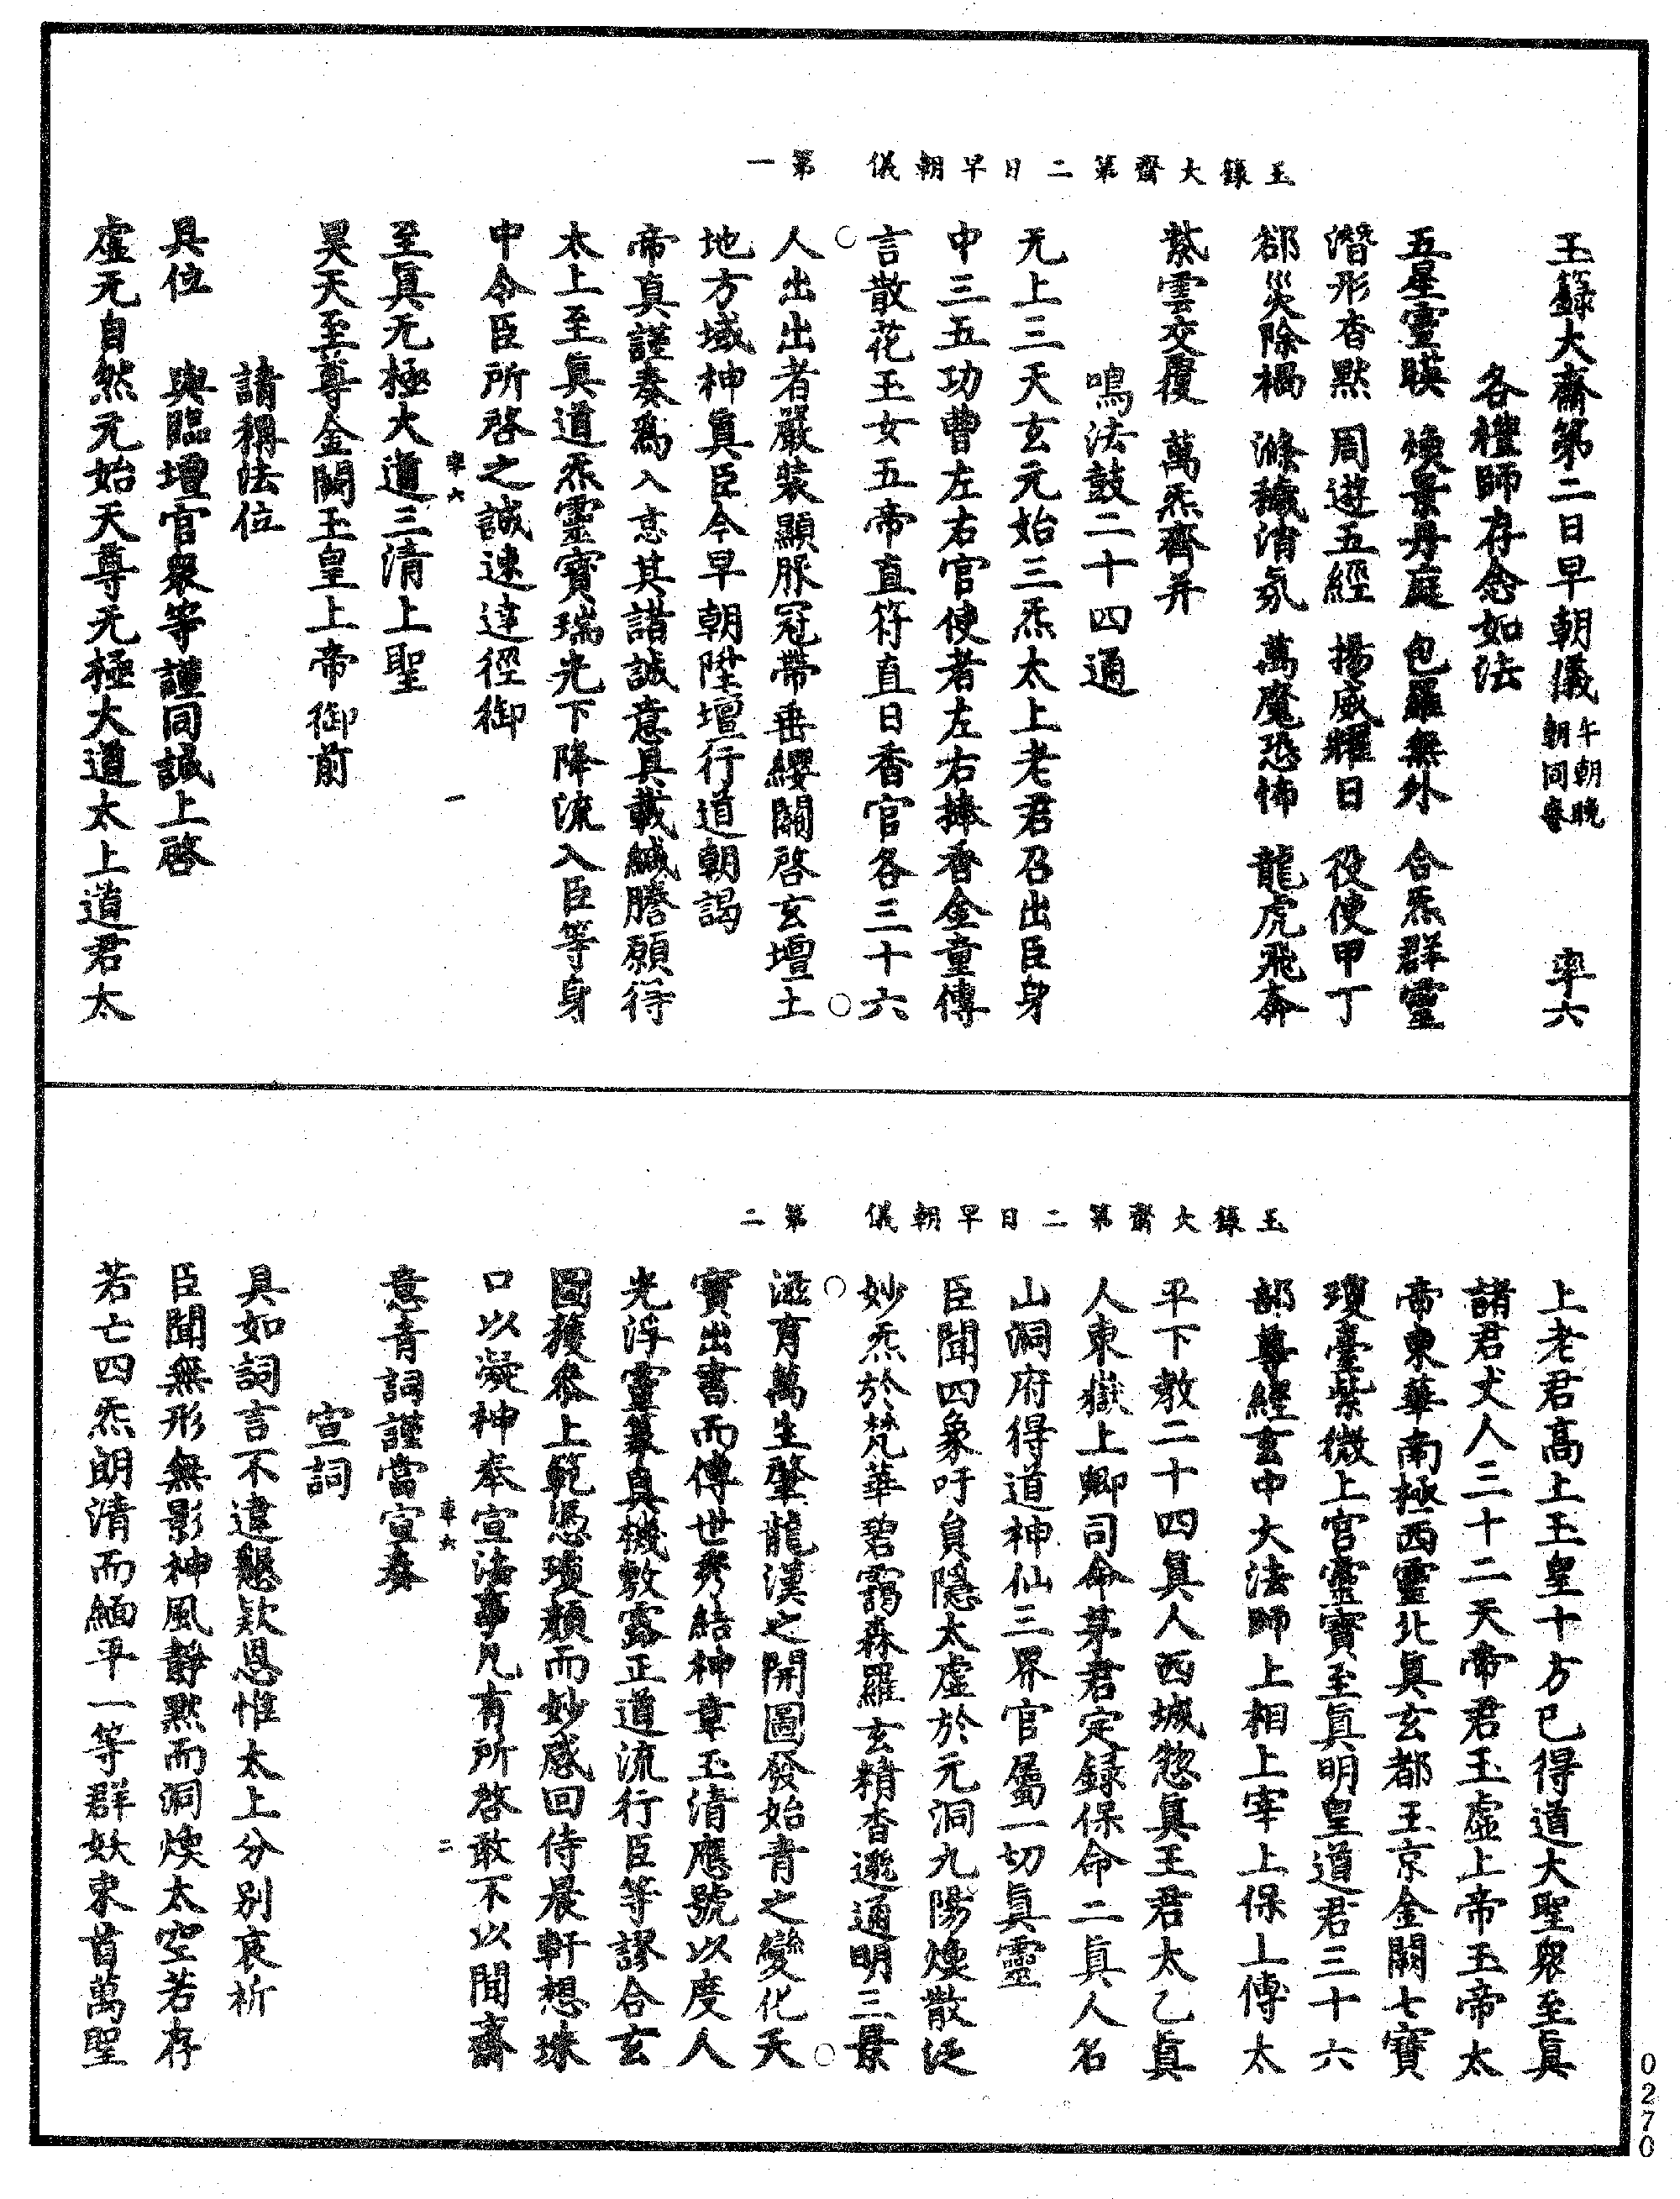 玉籙大齋第二日早朝儀 第一
玉籙大齋第二日早朝儀午朝晚朝同卷 率六
各禮師存念如法
五星靈暎 煥景丹庭 包羅無外 合炁群靈
潛形杳默 周遊五經 揚威耀日 役使甲丁
郤災除禍 滌穢消氛 萬魔恐怖 龍虎飛奔
紫雲交覆 萬炁齊并
鳴法鼓二十四通
无上三天玄元始三炁太上老君召出臣身
中三五功曹左右官使者左右捧香金童傳
言散花玉女五帝直符直日香官各三十六
人出出者嚴裝顯服冠帶垂纓關啓玄壇土
地方域神真臣今早朝陞壇行道朝謁
帝真謹奏為入意其諸誠意具載緘謄願得
太上至真道炁靈寶瑞光下降流入臣等身
中令臣所啓之誠速達徑御
率六 一
至真无極大道三清上聖
昊天至尊金闕玉皇上帝御前
請稱法位
具位 與臨壇官衆等謹同誠上啓
虛无自然元始天尊无極大道太上道君太
玉籙大齋第二日早朝儀 第二
上老君高上玉皇十方已得道大聖衆至真
諸君丈人三十二天帝君玉虛上帝玉帝太
帝東華南極西靈北真玄都玉京金闕七寶
瓊臺紫微上宮靈寶至真明皇道君三十六
部尊經玄中大法師上相上宰上保上傅太
平下教二十四真人西城惣真王君太乙真
人東嶽上卿司命茅君定錄保命二真人名
山洞府得道神仙三界官屬一切真靈
臣聞四象吁負隱太虛於元洞九陽煥散泛
妙炁於梵華碧靄森羅玄精杳邈通明三景
滋育萬生肇龍漢之開圖發始青之變化天
寶出書而傳世秀結神章玉清應號以度人
光浮靈篆真機敷露正道流行臣等謬合玄
圖獲參上範憑瓊顏而妙感回侍晨軒想珠
口以凝神奉宣法事凡有所啓敢不以聞齋
率六 二
意青詞謹當宣奏
宣詞
具如詞言不違懇欵恩惟太上分別哀祈
臣聞無形無影神風靜默而洞煥太空若存
若亡四炁朗清而緬平一等群妖束首萬聖
0270